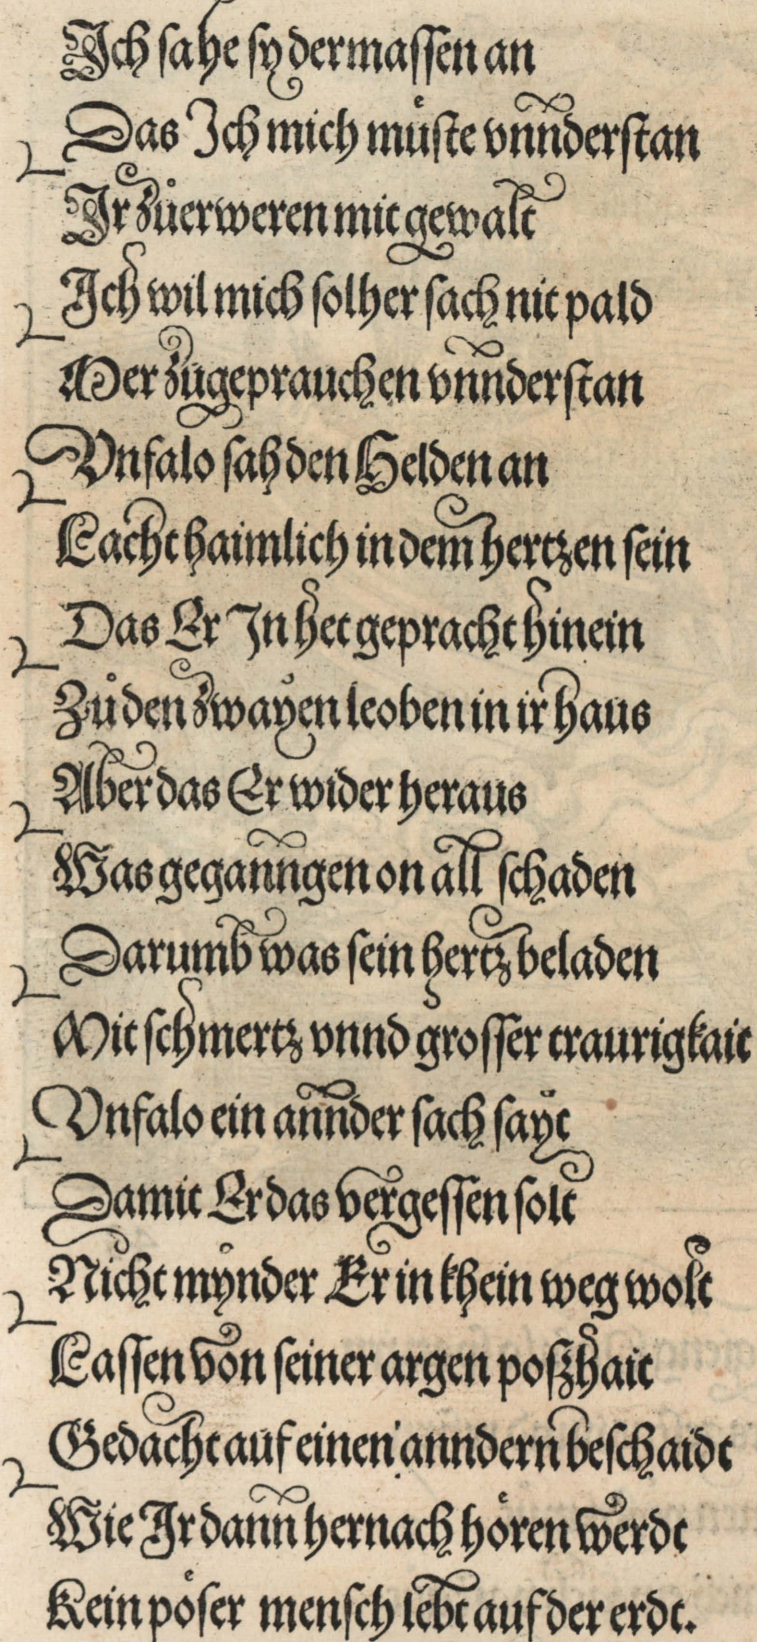 Ich sahe sy dermassen an
Das Ich mich müste vnnderstan
Ir zuͤerweren mit gewalt
Ich wil mich solher sach nit pald
Mer zugeprauchen vnnderstan
Vnfalo sah den Helden an
Lacht haimlich in dem hertzen sein
Das Er In het gepracht hinein
Zuͦ den zwaÿen leoben in ir haus
Aber das Er wider heraus
Was geganngen on all schaden
Darumb was sein hertz beladen
Mit schmertz vnnd grosser traurigkait
Vnfalo ein annder sach saÿt
Damit Er das vergessen solt
Nicht mÿnder Er in khein weg wolt
Lassen von seiner argen poszhait
Gedacht auf einen anndern beschaidt
Wie Ir dann hernach hoͤren werdt
Kein poͤser mensch lebt auf der erdt.